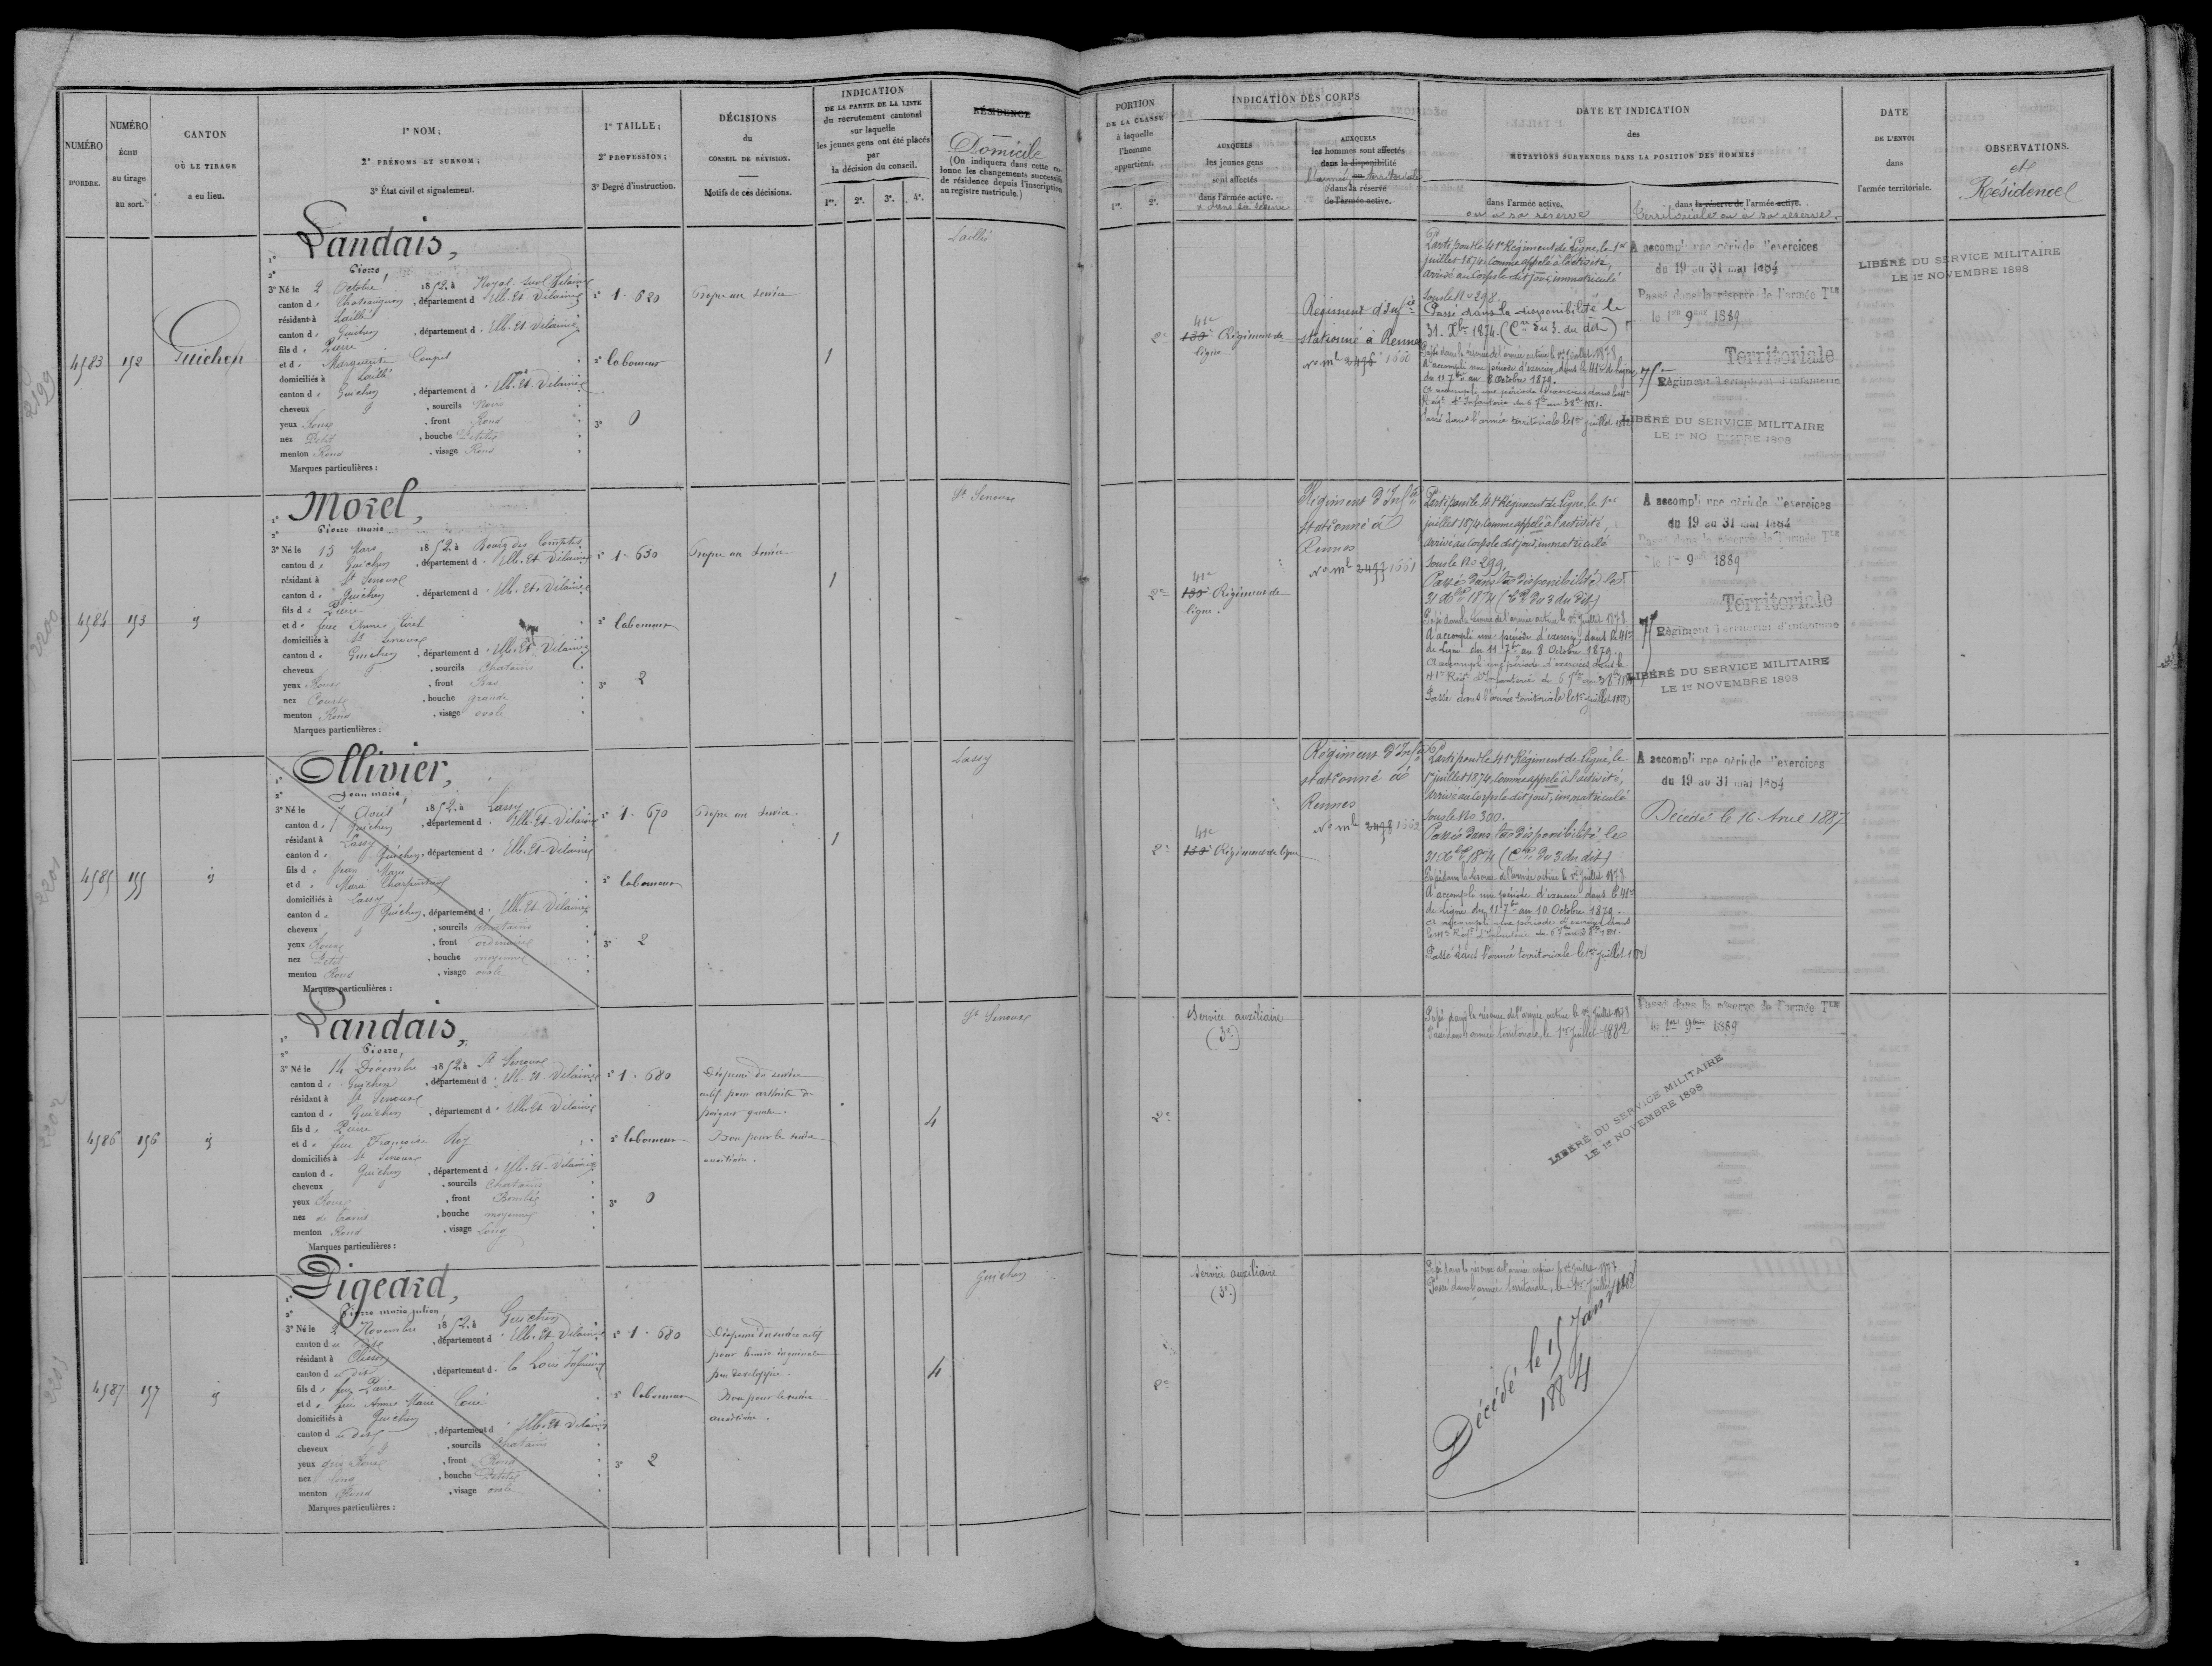 NUMÉRO
D'ORDRE.
NUMÉRO
ÉCHU
au tirage
au sort.
CANTON
OÙ LE TIRAGE
a eu lieu.
1° NOM;
2° PRÉNOMS ET SURNOM;
3° État civil et signalement.
1° TAILLE;
2° PROFESSION;
3° Degré d'instruction.
DÉCISIONS
du
CONSEIL DE RÉVISION.
Motifs de ces décisions.
INDICATION
DE LA PARTIE DE LA LISTE
du recrutement cantonal
sur laquelle
les jeunes gens ont été placés
par
la décision du conseil.
1re. 2e. 3e. 4e.
RÉSIDENCE
Domicile
(On indiquera dans cette colonne les changements successifs
de résidence depuis l'inscription
au registre matricule.)
PORTION
DE LA CLASSE
à laquelle
l'homme
appartient.
1re. 2e.
INDICATION DES CORPS
AUXQUELS
les jeunes gens
sont affectés
dans l'armée active.
& dans sa réserve
AUXQUELS
les hommes sont affectés
dans la disponibilité
l'armée territoriale
ou dans la réserve
de l'armée active.
DATE ET INDICATION
des
MUTATIONS SURVENUES DANS LA POSITION DES HOMMES
dans l'armée active,
ou à sa réserve
dans la réserve de l'armée active.
territoriale ou à sa réserve.
DATE
DE L'ENVOI
dans
l'armée territoriale.
OBSERVATIONS.
et
Résidence
4583 152 Guichen
2199
1° Landais,
2° Pierre,
3° Né le 2 Octobre 1852, à Noyal-sur-Vilaine
canton de Chateaugiron, département d'Ille-et-Vilaine
résidant à Laillé
canton de Guichen, département d'Ille-et-Vilaine
fils de Pierre
et de Marguerite Coupel
domiciliés à Laillé
canton de Guichen, département d'Ille-et-Vilaine
cheveux, sourcils Noirs
yeux Roux, front Rond
nez Petit, bouche Petite
menton Rond, visage Rond
Marques particulières :
1° 1.620
2° laboureur
3° 0
Propre au service
1
Laillé
2e
41e
133e Régiment de
ligne
Régiment d'Infie
stationné à Rennes
No Mle 2496 1660
Parti pour le 41e Régiment de Ligne, le 1er
juillet 1874, comme appelé à l'activité,
arrivé au Corps le dit jour, immatriculé
sous le No 298.
Passé dans la disponibilité le
31 Xbre 1874. (Cre du 3 du dit)
Passé dans la réserve de l'armée active le 1er Juillet 1878
A accompli une période d'exercices dans le 41e de ligne,
du 11 7bre au 8 Octobre 1879.
A accompli une période d'exercices dans le 41e
Régt d'Infanterie du 6 7bre au 3 8bre 1881.
Passé dans l'armée territoriale le 1er juillet 1882
A accompli une période d'exercices
du 19 au 31 mai 1884
Passé dans la réserve de l'armée Tle
le 1er 9bre 1889
Territoriale
75e Régiment Territorial d'Infanterie
LIBÉRÉ DU SERVICE MILITAIRE
LE 1er NOVEMBRE 1898
LIBÉRÉ DU SERVICE MILITAIRE
LE 1er NOVEMBRE 1898
4584 153 id
2200
1° Morel,
2° Pierre marie
3° Né le 13 Mars 1852, à Bourg des Comptes
canton de Guichen, département d'Ille-et-Vilaine
résidant à St Senoux
canton de Guichen, département d'Ille-et-Vilaine
fils de Pierre
et de feue Anne
domiciliés à St Senoux
canton de Guichen, département d'Ille-et-Vilaine
cheveux, sourcils Chatains
yeux Roux, front Bas
nez Court, bouche grande
menton Rond, visage ovale
Marques particulières :
1° 1.630
2° laboureur
3° 2
Propre au service
1
St Senoux
2e
41e
133e Régiment de
ligne.
Régiment d'Infie
stationné à
Rennes
No Mle 2497 1661
Parti pour le 41e Régiment de Ligne, le 1er
juillet 1874, comme appelé à l'activité,
arrivé au Corps le dit jour, immatriculé
sous le No 299.
Passé dans la disponibilité le
31 Xbre 1874 (Cre du 3 du dit)
Passé dans la réserve de l'armée active le 1er Juillet 1878
A accompli une période d'exercices dans le 41e
de Ligne du 11 7bre au 8 Octobre 1879.
A accompli une période d'exercices dans le
41e Régt d'Infanterie du 6 7bre au 3 8bre 1881
Passé dans l'armée territoriale le 1er juillet 1882
A accompli une période d'exercices
du 19 au 31 mai 1884
Passé dans la réserve de l'armée Tle
le 1er 9bre 1889
Territoriale
75e Régiment Territorial d'Infanterie
LIBÉRÉ DU SERVICE MILITAIRE
LE 1er NOVEMBRE 1898
4585 155 id
2201
1° Ollivier,
2° Jean marie,
3° Né le 7 Avril 1852, à Lassy
canton de Guichen, département d'Ille-et-Vilaine
résidant à Lassy
canton de Guichen, département d'Ille-et-Vilaine
fils de Jean Marie
et de Marie Charpentier
domiciliés à Lassy
canton de Guichen, département d'Ille-et-Vilaine
cheveux, sourcils chatains
yeux Roux, front ordinaire
nez Petit, bouche moyenne
menton Rond, visage ovale
Marques particulières :
1° 1.670
2° laboureur
3° 2
Propre au service
1
Lassy
2e
41e
133e Régiment de ligne
Régiment d'Infie
stationné à
Rennes
No Mle 2498 1662
Parti pour le 41e Régiment de Ligne, le
1er juillet 1874, comme appelé à l'activité,
arrivé au corps le dit jour, immatriculé
sous le No 300.
Passé dans la disponibilité le
31 Xbre 1874 (Cre du 3 du dit)
Passé dans la réserve de l'armée active le 1er Juillet 1878
A accompli une période d'exercices dans le 41e
de Ligne du 11 7bre au 10 Octobre 1879.
A accompli une période d'exercices dans
le 41e Régt d'Infanterie du 6 7bre au 3 8bre 1881.
Passé dans l'armée territoriale le 1er juillet 1882
A accompli une période d'exercices
du 19 au 31 mai 1884
Décédé le 16 Avril 1887
4586 156 id
2202
1° Landais,
2° Pierre,
3° Né le 14 Décembre 1852, à St Senoux
canton de Guichen, département d'Ille-et-Vilaine
résidant à St Senoux
canton de Guichen, département d'Ille-et-Vilaine
fils de Pierre
et de feue Françoise
domiciliés à St Senoux
canton de Guichen, département d'Ille-et-Vilaine
cheveux, sourcils Chatains
yeux Roux, front Bombé
nez, bouche moyenne
menton Rond, visage Long
Marques particulières :
1° 1.680
2° laboureur
3° 0
Dispensé du service
actif pour arthrite du
poignet gauche.
Bon pour le service
auxiliaire.
4
St Senoux
2e
Service auxiliaire
(3e)
Passé dans la réserve de l'armée active le 1er Juillet 1878
Passé dans l'armée territoriale, le 1er juillet 1882
Passé dans la réserve de l'armée Tle
le 1er 9bre 1889
LIBÉRÉ DU SERVICE MILITAIRE
LE 1er NOVEMBRE 1898
4587 157 id
2203
1° Pigeard,
2° Pierre marie julien,
3° Né le 2 Novembre 1852, à Guichen
canton du dit, département d'Ille-et-Vilaine
résidant à Clisson
canton du dit, département de la Loire Inférieure
fils de feu Pierre
et de feue Anne Marie
domiciliés à Guichen
canton du dit, département d'Ille-et-Vilaine
cheveux, sourcils Chatains
yeux gris Roux, front Rond
nez long, bouche Petite
menton Rond, visage ovale
Marques particulières :
1° 1.680
2° laboureur
3° 2
Dispensé du service actif
pour hernie inguinale
peu développée.
Bon pour le service
auxiliaire.
4
Guichen
2e
Service auxiliaire
(3e)
Passé dans la réserve de l'armée active le 1er Juillet 1878
Passé dans l'armée territoriale, le 1er juillet 1882
Décédé le 15 Janvier
1884